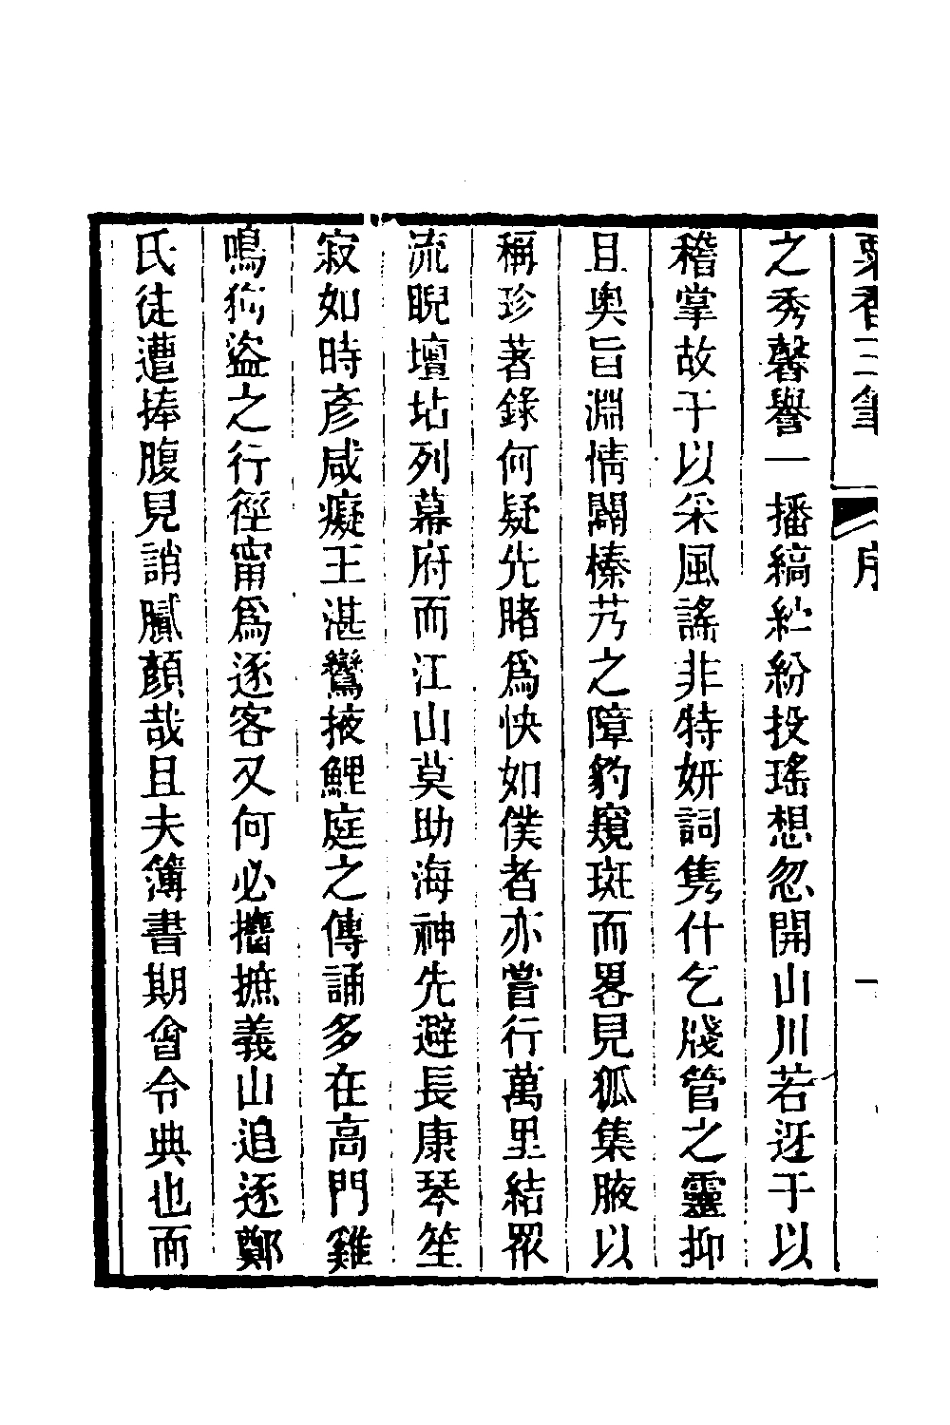 粟香三筆
序
一
之秀馨譽一播縞紵紛投瑤想忽開山川若迓于以
稽掌故于以采風謠非特妍詞雋什乞牋管之靈抑
且奧旨淵情闢榛艿之障豹窺斑而畧見狐集腋以
稱珍著錄何疑先睹爲快如僕者亦嘗行萬里結眾
流睨壇坫列幕府而江山莫助海神先避長康琴笙
寂如時彥咸癡王湛鸞掖鯉庭之傳誦多在高門雞
鳴狗盜之行徑甯爲逐客又何必擣摭義山追逐鄭
氏徒遭捧腹見誚膩顏哉且夫簿書期會令典也而